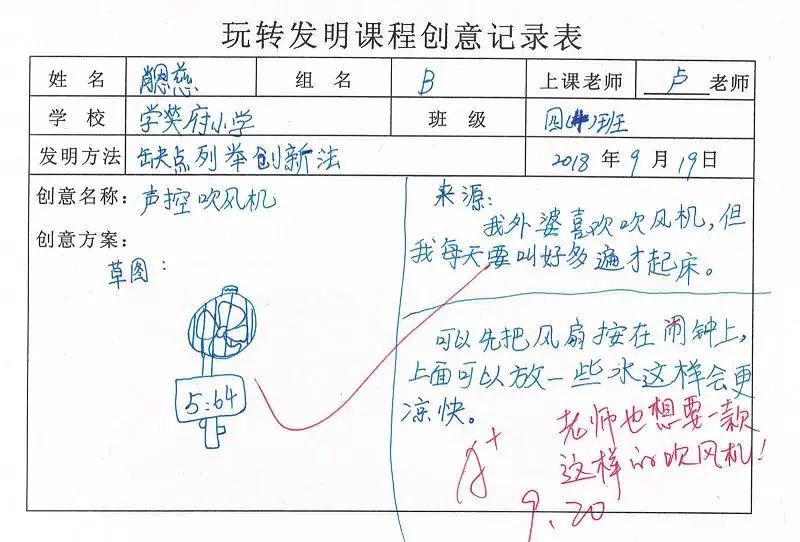 玩转发明课程创意记录表
姓 名 慈 组 名 B 上课老师 卢 老师
学 校 学英府小学 班 级 四 班
发明方法 缺点列举创新法 2018 年 9 月 19 日
创意名称: 声控吹风机
创意方案:
草图:
5:64
来源:
我外婆喜欢吹风机,但
我每天要叫好多遍才起床。
可以先把风扇按在闹钟上,
上面可以放一些冰这样会更
凉快。
A+
老师也想要一款
这样的吹风机!
9.20